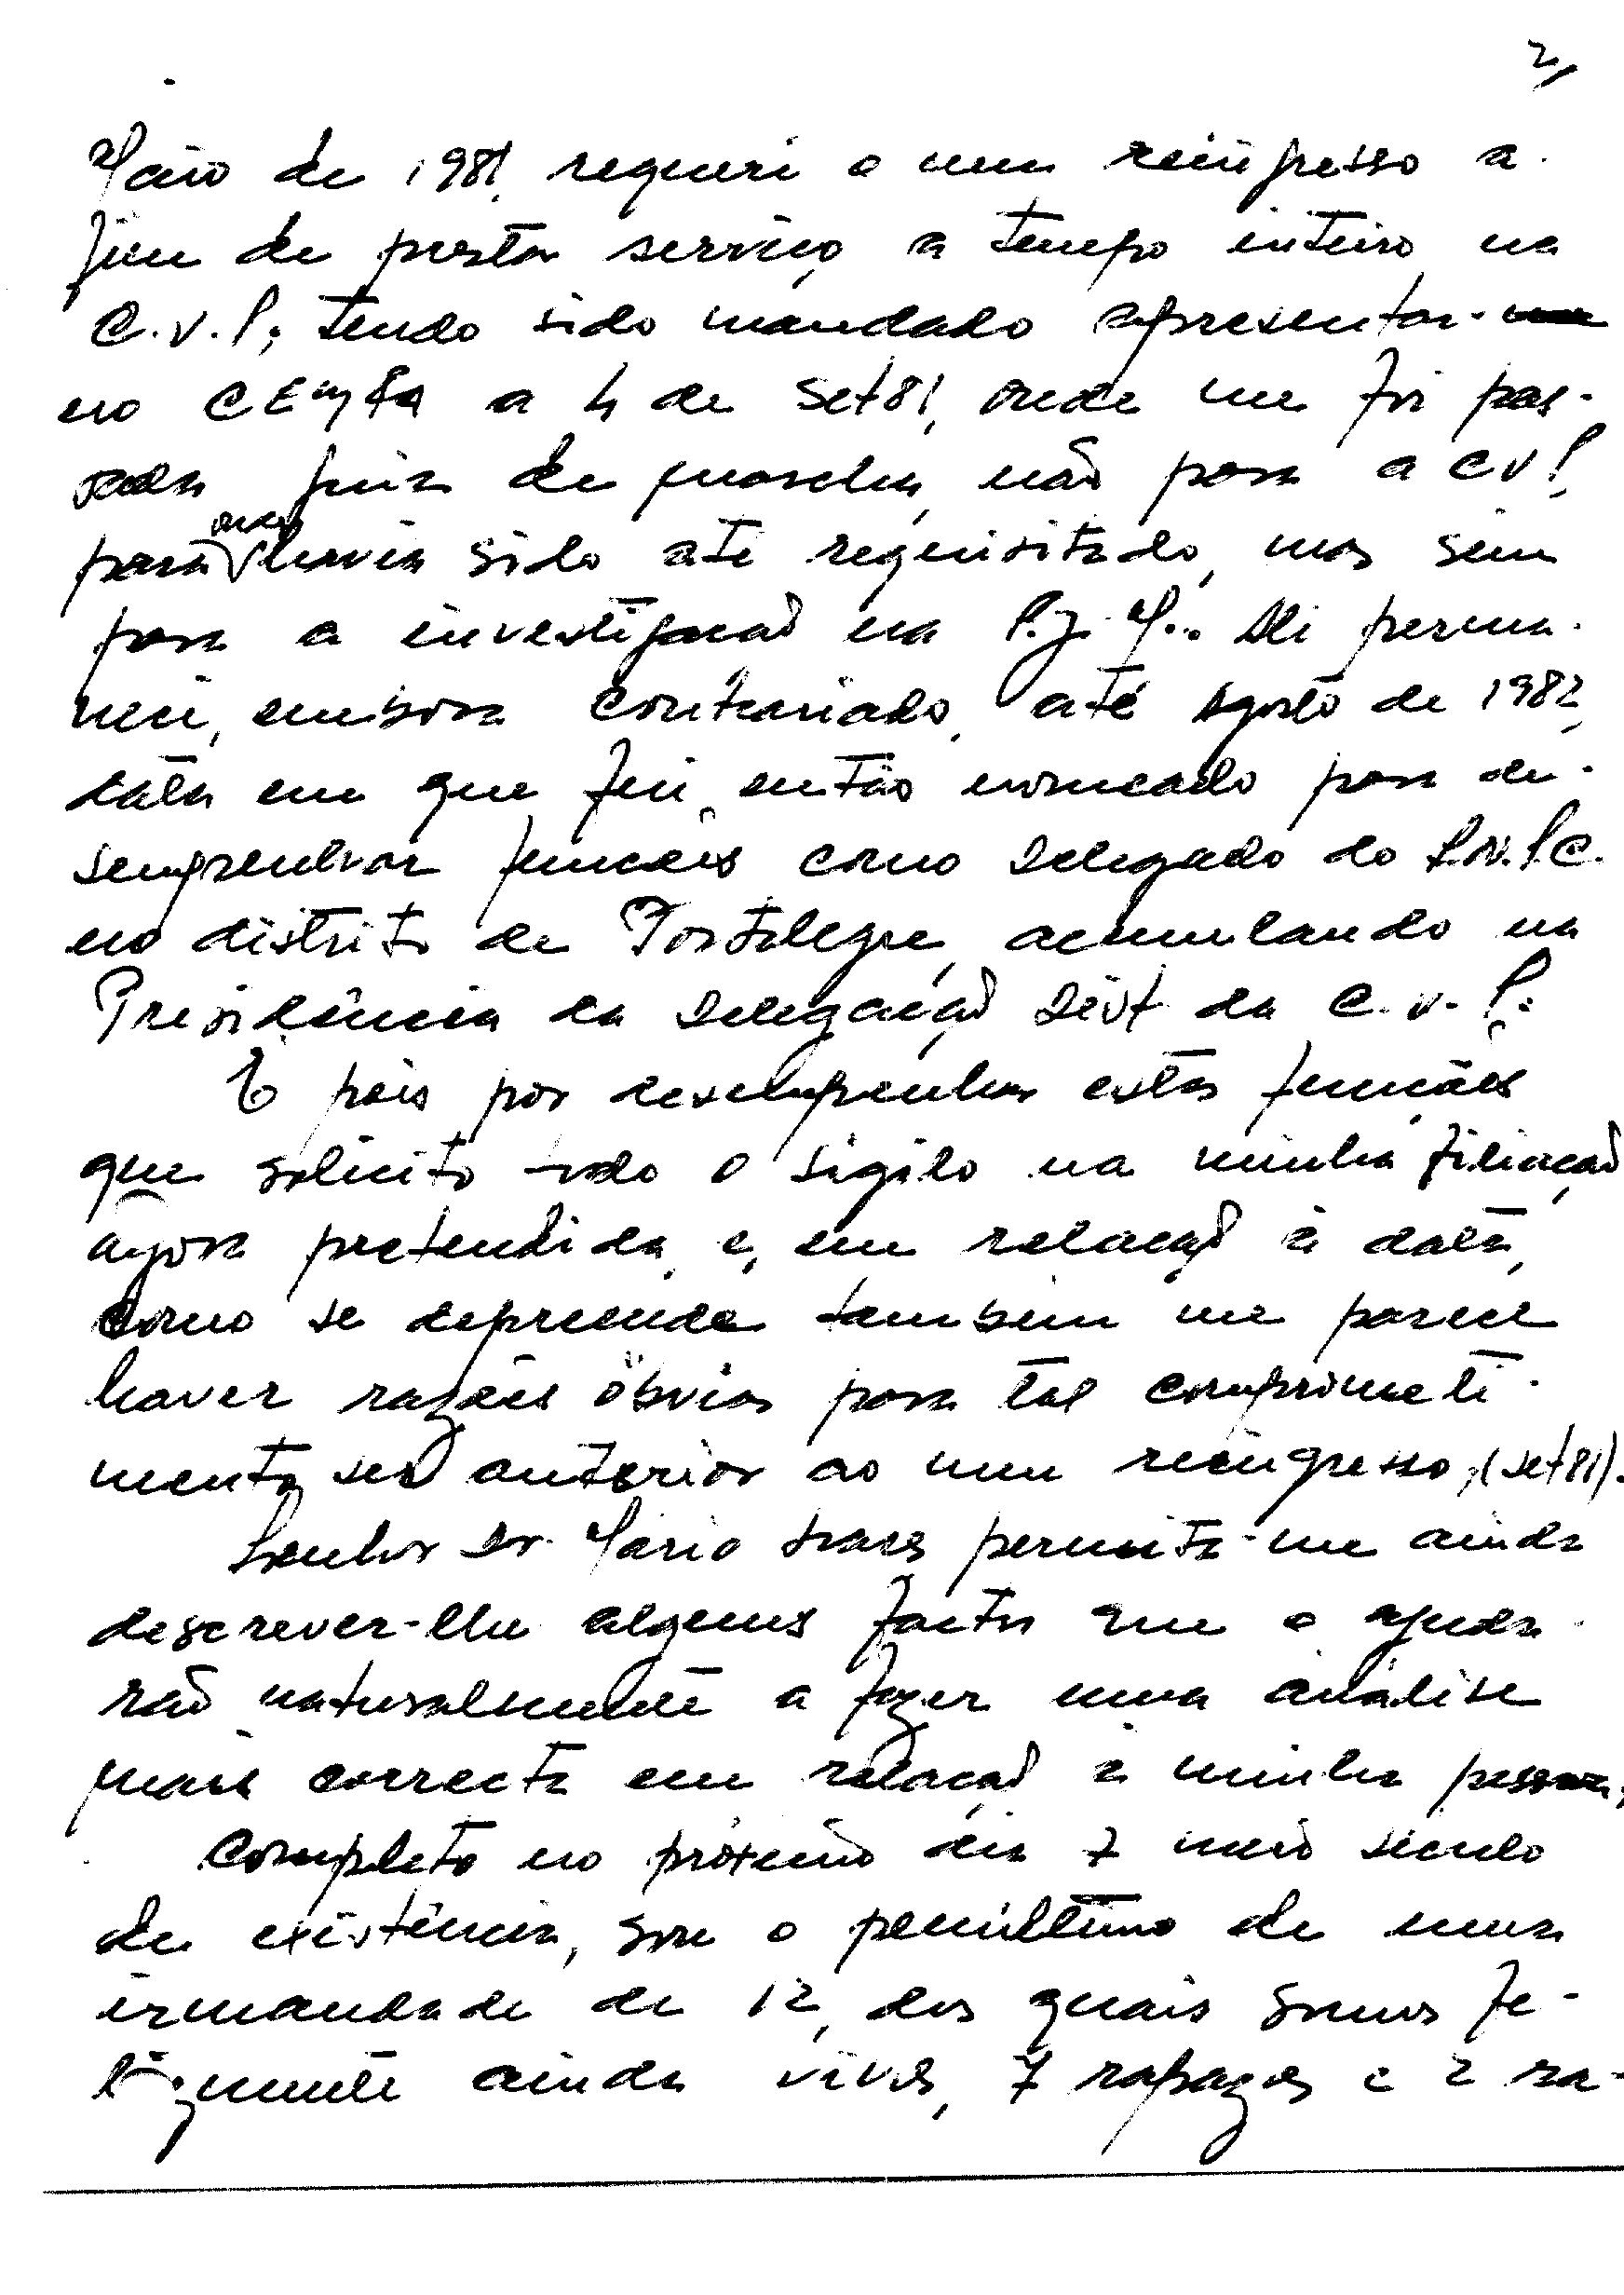 2/
Maio de 1981, requeri o meu reingresso a
fim de prestar serviço a tempo inteiro na
C.V.P., tendo sido mandado apresentar-me
no CEMGFA a 4 de Set81, onde me foi pas-
sada guia de marcha, não para a CVP,
para onde havia sido até requisitado, mas sim
para a investigação na P.J.M.. Ali perma-
neci, embora contrariado, até Agosto de 1982,
data em que fui então nomeado para de-
sempenhar funções como Delegado do S.N.P.C.
no distrito de Portalegre, acumulando na
Presidência da Delegação Dist da C.V.P.
É pois por desempenhar estas funções
que solicito todo o sigilo na minha filiação
agora pretendida, e, em relação à data,
como se depreende também me parece
haver razões óbvias para tal comprometi-
mento ser anterior ao meu reingresso, (set81).
Senhor Dr. Mário Soares permita-me ainda
descrever-lhe alguns factos que o ajuda-
rão naturalmente a fazer uma análise
mais correcta em relação à minha pessoa,
Completo no próximo dia 7 meio século
de existência, sou o penúltimo de uma
irmandade de 12, dos quais somos fe-
lizmente ainda vivos, 7 rapazes e 2 ra-